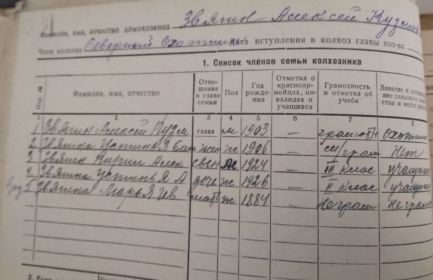 Фамилия, имя, отчество домохозяина Звягин Алексей Кузм
Член колхоза Северный Охотник вступления в колхоз главы хоз-ва
1. Список членов семьи колхозника
Фамилия, имя, отчество Отношение к главе семьи Пол Год рождения Отметка о красноармейцах, инвалидах и учащихся Грамотность и отметка об учебе
2 3 4 5 6 7
1 Звягин Алексей Кузм глава м 1903 — грамотн Охотник
2 Звягина Устинья жен ж 1906 — Нет
3 Звягин Алек сын м 1924 — III клас учащий
4 Звягина Устинья А дочь ж 1926 — II клас учащий
5 Звягина Марья Ив мать ж 1884 неграм